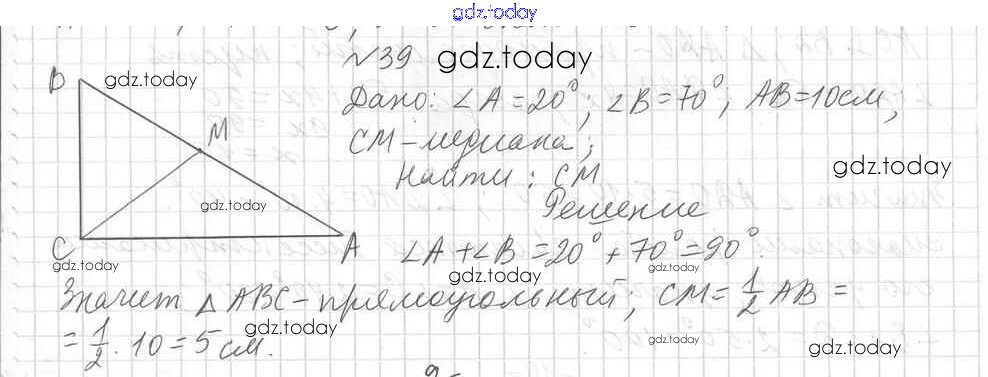 gdz.today
№39 gdz.today
В gdz.today
Дано: ∠A = 20°; ∠B = 70°; AB = 10 см;
М
СМ - медиана;
gdz.today
Найти: СМ
gdz.today
Решение
С А ∠A + ∠B = 20° + 70° = 90°.
gdz.today gdz.today gdz.today
Значит △ ABC - прямоугольный; CM = 1/2 AB =
gdz.today
= 1/2 · 10 = 5 см.
gdz.today gdz.today